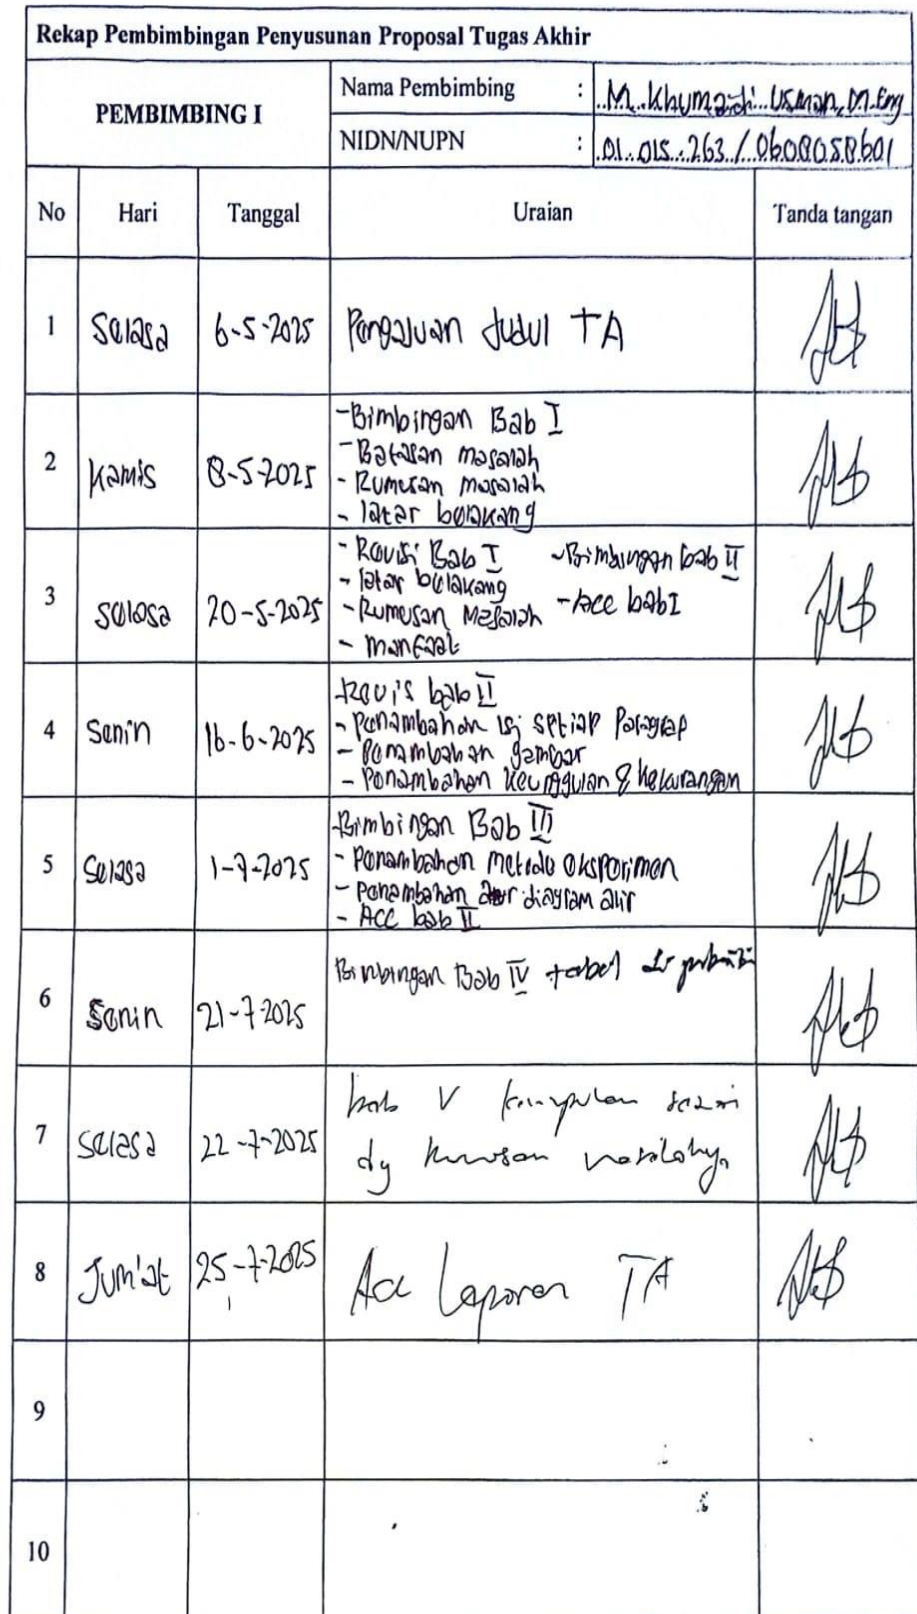 Rekap Pembimbingan Penyusunan Proposal Tugas Akhir
PEMBIMBING I
Nama Pembimbing : M. Khumaidi Usman, M.Eng
NIDN/NUPN : 01.015.263 / 0608058601
No Hari Tanggal Uraian Tanda tangan
1 Selasa 6-5-2025 Pengajuan Judul TA
2 Kamis 8-5-2025
- Bimbingan Bab I
- Batasan masalah
- Rumusan masalah
- latar belakang
3 Selasa 20-5-2025
- Revisi Bab I - Bimbingan bab II
- latar belakang
- Rumusan Masalah - Acc bab I
- manfaat
4 Senin 16-6-2025
Revis bab II
- Penambahan isi setiap Paragrap
- Penambahan gambar
- Penambahan keunggulan & kekurangan
5 Selasa 1-7-2025
Bimbingan Bab III
- Penambahan metode eksperimen
- Penambahan diagram alir
- ACC bab II
6 Senin 21-7-2025 Bimbingan Bab IV tabel
7 Selasa 22-7-2025
bab V kesimpulan sesuai
dg rumusan
8 Jum'at 25-7-2025 Acc Laporan TA
9
10